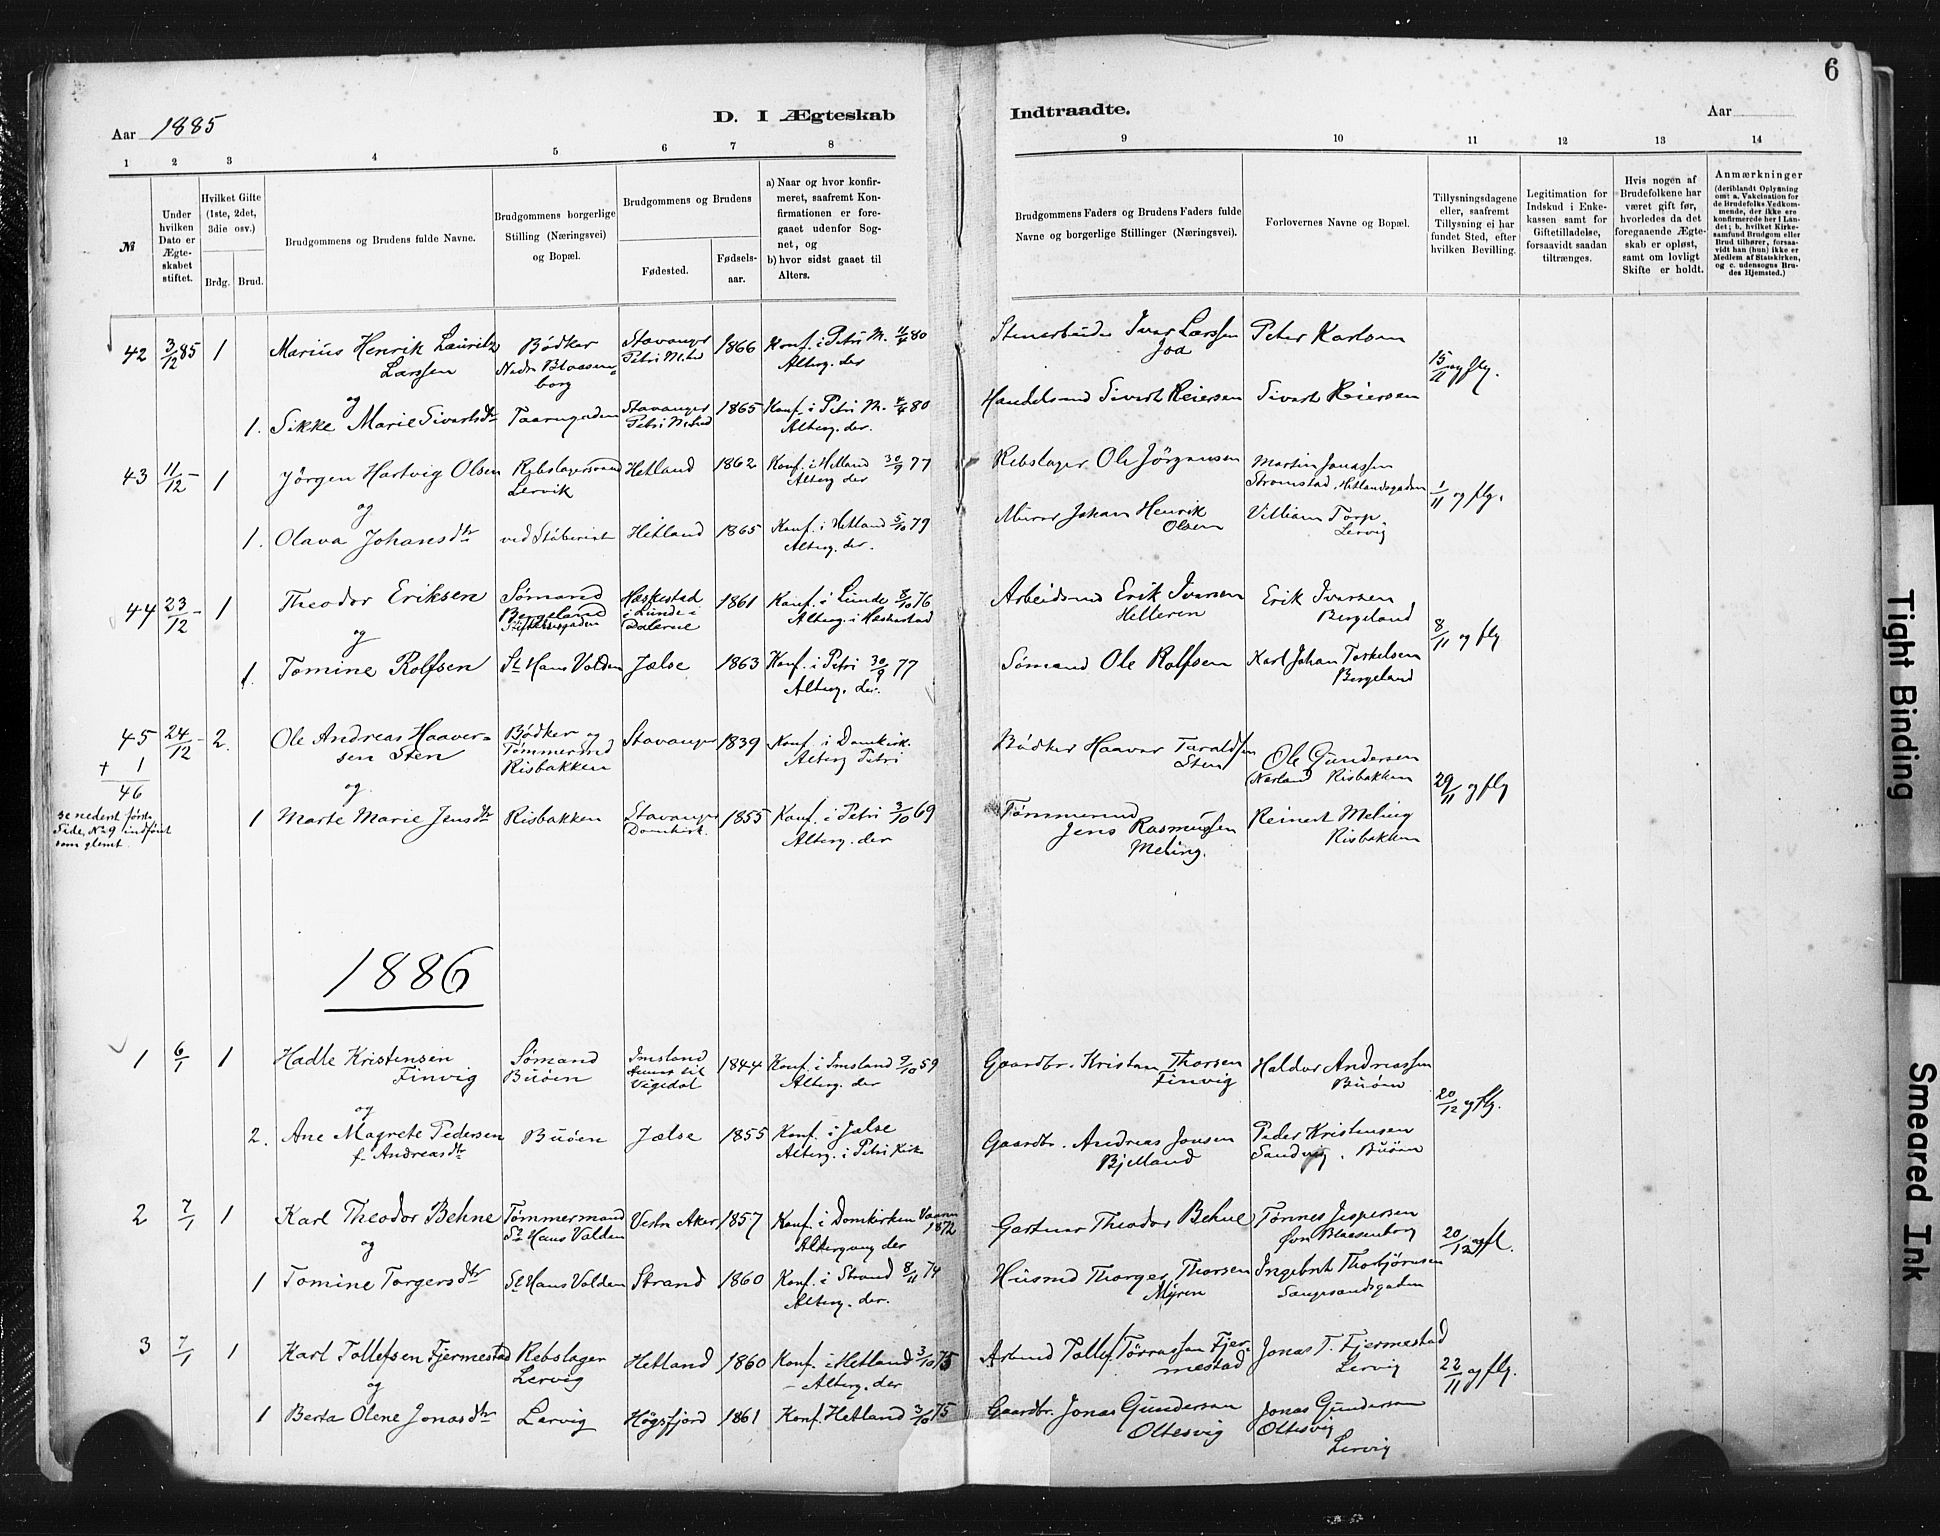 6
Aar 1885
D. I Ægteskab
Indtraadte.
Aar
1 2 3 4 5 6 7 8
9 10 11 12 13 14
№
Under hvilken Dato er Ægteskabet stiftet.
Hvilket Gifte (1ste, 2det, 3die osv.)
Brdg. Brud.
Brudgommens og Brudens fulde Navne.
Brudgommens borgerlige Stilling (Næringsvei) og Bopæl.
Brudgommens og Brudens
Fødested.
Fødselsaar.
a) Naar og hvor konfirmeret, saafremt Konfirmationen er foregaaet udenfor Sognet, og
b) hvor sidst gaaet til Alters.
Brudgommens Faders og Brudens Faders fulde Navne og borgerlige Stillinger (Næringsvei).
Forlovernes Navne og Bopæl.
Tillysningsdagene eller, saafremt Tillysning ei har fundet Sted, efter hvilken Bevilling.
Legitimation for Indskud i Enkekassen samt for Giftetilladelse, forsaavidt saadan tiltrænges.
Hvis nogen af Brudefolkene har været gift før, hvorledes da det foregaaende Ægteskab er opløst, samt om lovligt Skifte er holdt.
Anmærkninger
(deriblandt Oplysning om: a. Vakcination for de Brudefolks Vedkommende, der ikke ere konfirmerede her i Landet; b. hvilket Kirkesamfund Brudgom eller Brud tilhører, forsaavidt han (hun) ikke er Medlem af Statskirken, og c. udensogns Brudes Hjemsted.)
42 3/12 85 1 Marius Henrik Lauritz Larssen Bødker Nedre Blaasenborg Stavanger Petri M. 1866 Konf. i Petri M. 11/4 80 Alterg. der
Ivar Larssen Joa Peter Karlsen
15/11 og flg.
og
1. Sikke Marie Sivertsdtr Taarngaden Stavanger Petri 1865 Konf. i Petri M. 4/4 80 Alterg. der.
Handelsmd Sivert Reiersen Sivert Reiersen
43 11/12 – 1 Jörgen Hartvig Olsen Rebslagersvend Lervik Hetland 1862 Konf. i Hetland 30/9 77 Alterg. der
Rebslager Ole Jörgensen Martin Jonassen Stromstad, Hetlandsgaden
1/11 og flg.
og
1. Olava Johansdtr Hetland 1865 Konf. i Hetland 5/10 79 Alterg. der.
Murer Johan Henrik Olsen Villiam Torp, Lervig
44 23/12 – 1 Theodor Eriksen Sømand Bergeland Hæskestad i Lunde i Dalerne 1861 Konf. i Lunde 8/10 76 Alterg. i Hæskestad
Arbeidsmd Erik Ivarsen Helleren Erik Ivarsen Bergeland
8/11 og flg
og
1. Tomine Rolfsen St Hans Volden Jælse 1863 Konf. i Petri 30/9 77 Alterg. der.
Sømand Ole Rolfsen Karl Johan Torkelsen Bergeland
45 24/12 – 2. Ole Andreas Haaversen Sten Bødker og Tømmermd Risbakken Stavanger 1839 Konf. i Domkirk. Alterg Petri
Bødker Haaver Taraldsen Sten Ole Gundersen Risbakken
29/11 og flg
+ 1
46
se nederst første Side, No 9 indført som glemt.
og
1 Marte Marie Jensdtr Risbakken Stavanger Domkirk. 1855 Konf. i Petri 3/10 69 Alterg. der
Tømmermd Jens Rasmussen Meling. Reinert Meling Risbakken
1886
1 6/1 1 Hadle Kristensen Finvig Sømand Buöen Imsland Vigedal 1844 Konf. i Imsland 9/10 59 Alterg. der
Gaardbr. Kristen Thorsen Finvig Haldor Andreassen Buöen
20/12 og flg.
og
2. Ane Magrete Pedersen f. Andreasdtr Buöen Jælse 1855 Konf. i Jælse Alterg. i Petri Kirk
Gaardbr. Andreas Jonsen Bjelland Peder Kristensen Sandvig, Buöen
2 7/1 1 Karl Theodor Behne Tømmermand St Hans Volden Vestre Aker 1857 Konf. i Domkirken Vaaren 1872 Altergang der
Gartner Theodor Behne Tönnes Jespersen Øvre Blaasenborg
20/12 og fl.
og
1 Tomine Torgersdtr St Hans Volden Strand 1860 Konf. i Strand 8/11 74 Alterg. der.
Husmd Thorger Thorsen Myren Ingebret Thorbjörnsen
3 7/1 1 Karl Tollefsen Fjermestad Rebslager Lervig Hetland 1860 Konf. i Hetland 3/10 75 – Alterg. der
Arbmd Tollef Fjermestad Jonas T. Fjermestad Lervig
22/11 og flg.
og
1 Berta Olene Jonasdtr Lervig Högsfjord 1861 Konf. Hetland 3/10 75
Gaardbr. Jonas Gundersen Oltesvig Jonas Gundersen Oltesvig Lervig
Tight Binding
Smeared Ink